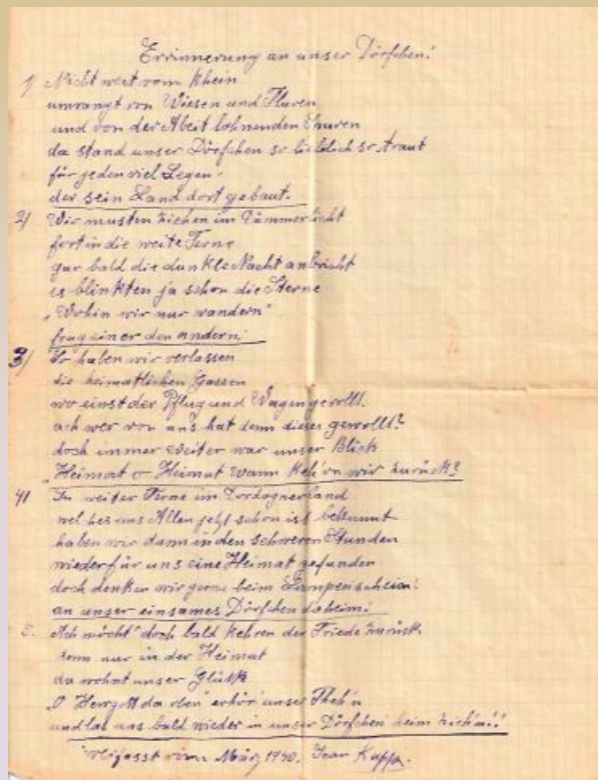 Errinnerung an unser Dörfchen!
1/ Nicht weit vom Rhein
umrangt von Wiesen und Fluren
und von der Abeit lohnenden Spuren
da stand unser Dörfchen so lieblich so traut
für jeden viel Segen
der sein Land dort gebaut.
2/ Wir musten ziehen im Dämmerlicht
fort in die weite Ferne
gar bald die dunkle Nacht anbricht
es blinkten ja schon die Sterne
"Wohin wir nur wandern"
frug einer den andern.
3/ So haben wir verlassen
die heimatlichen Gassen
wo einst der Pflug und Wagen gerollt.
ach wer von uns hat denn dieses gewollt?
doch immer weiter war unser Blick
"Heimat o Heimat wann keh'rn wir zurück?
4/ In weiter Ferne im Dordognerland
welches uns Allen jetzt schon ist bekannt
haben wir dann in den schweren Stunden
wieder für uns eine Heimat gefunden
doch denken wir gerne beim Lampenschein!
an unser einsames Dörfchen daheim!
5. Ach möcht' doch bald kehren der Friede zurück
denn nur in der Heimat
da wohnt unser Glück
"O Herrgott da oben erhör' unser Fleh'n
und las uns bald wieder in unser Dörfchen heim zieh'n!!
verfasst März 1940. Jean